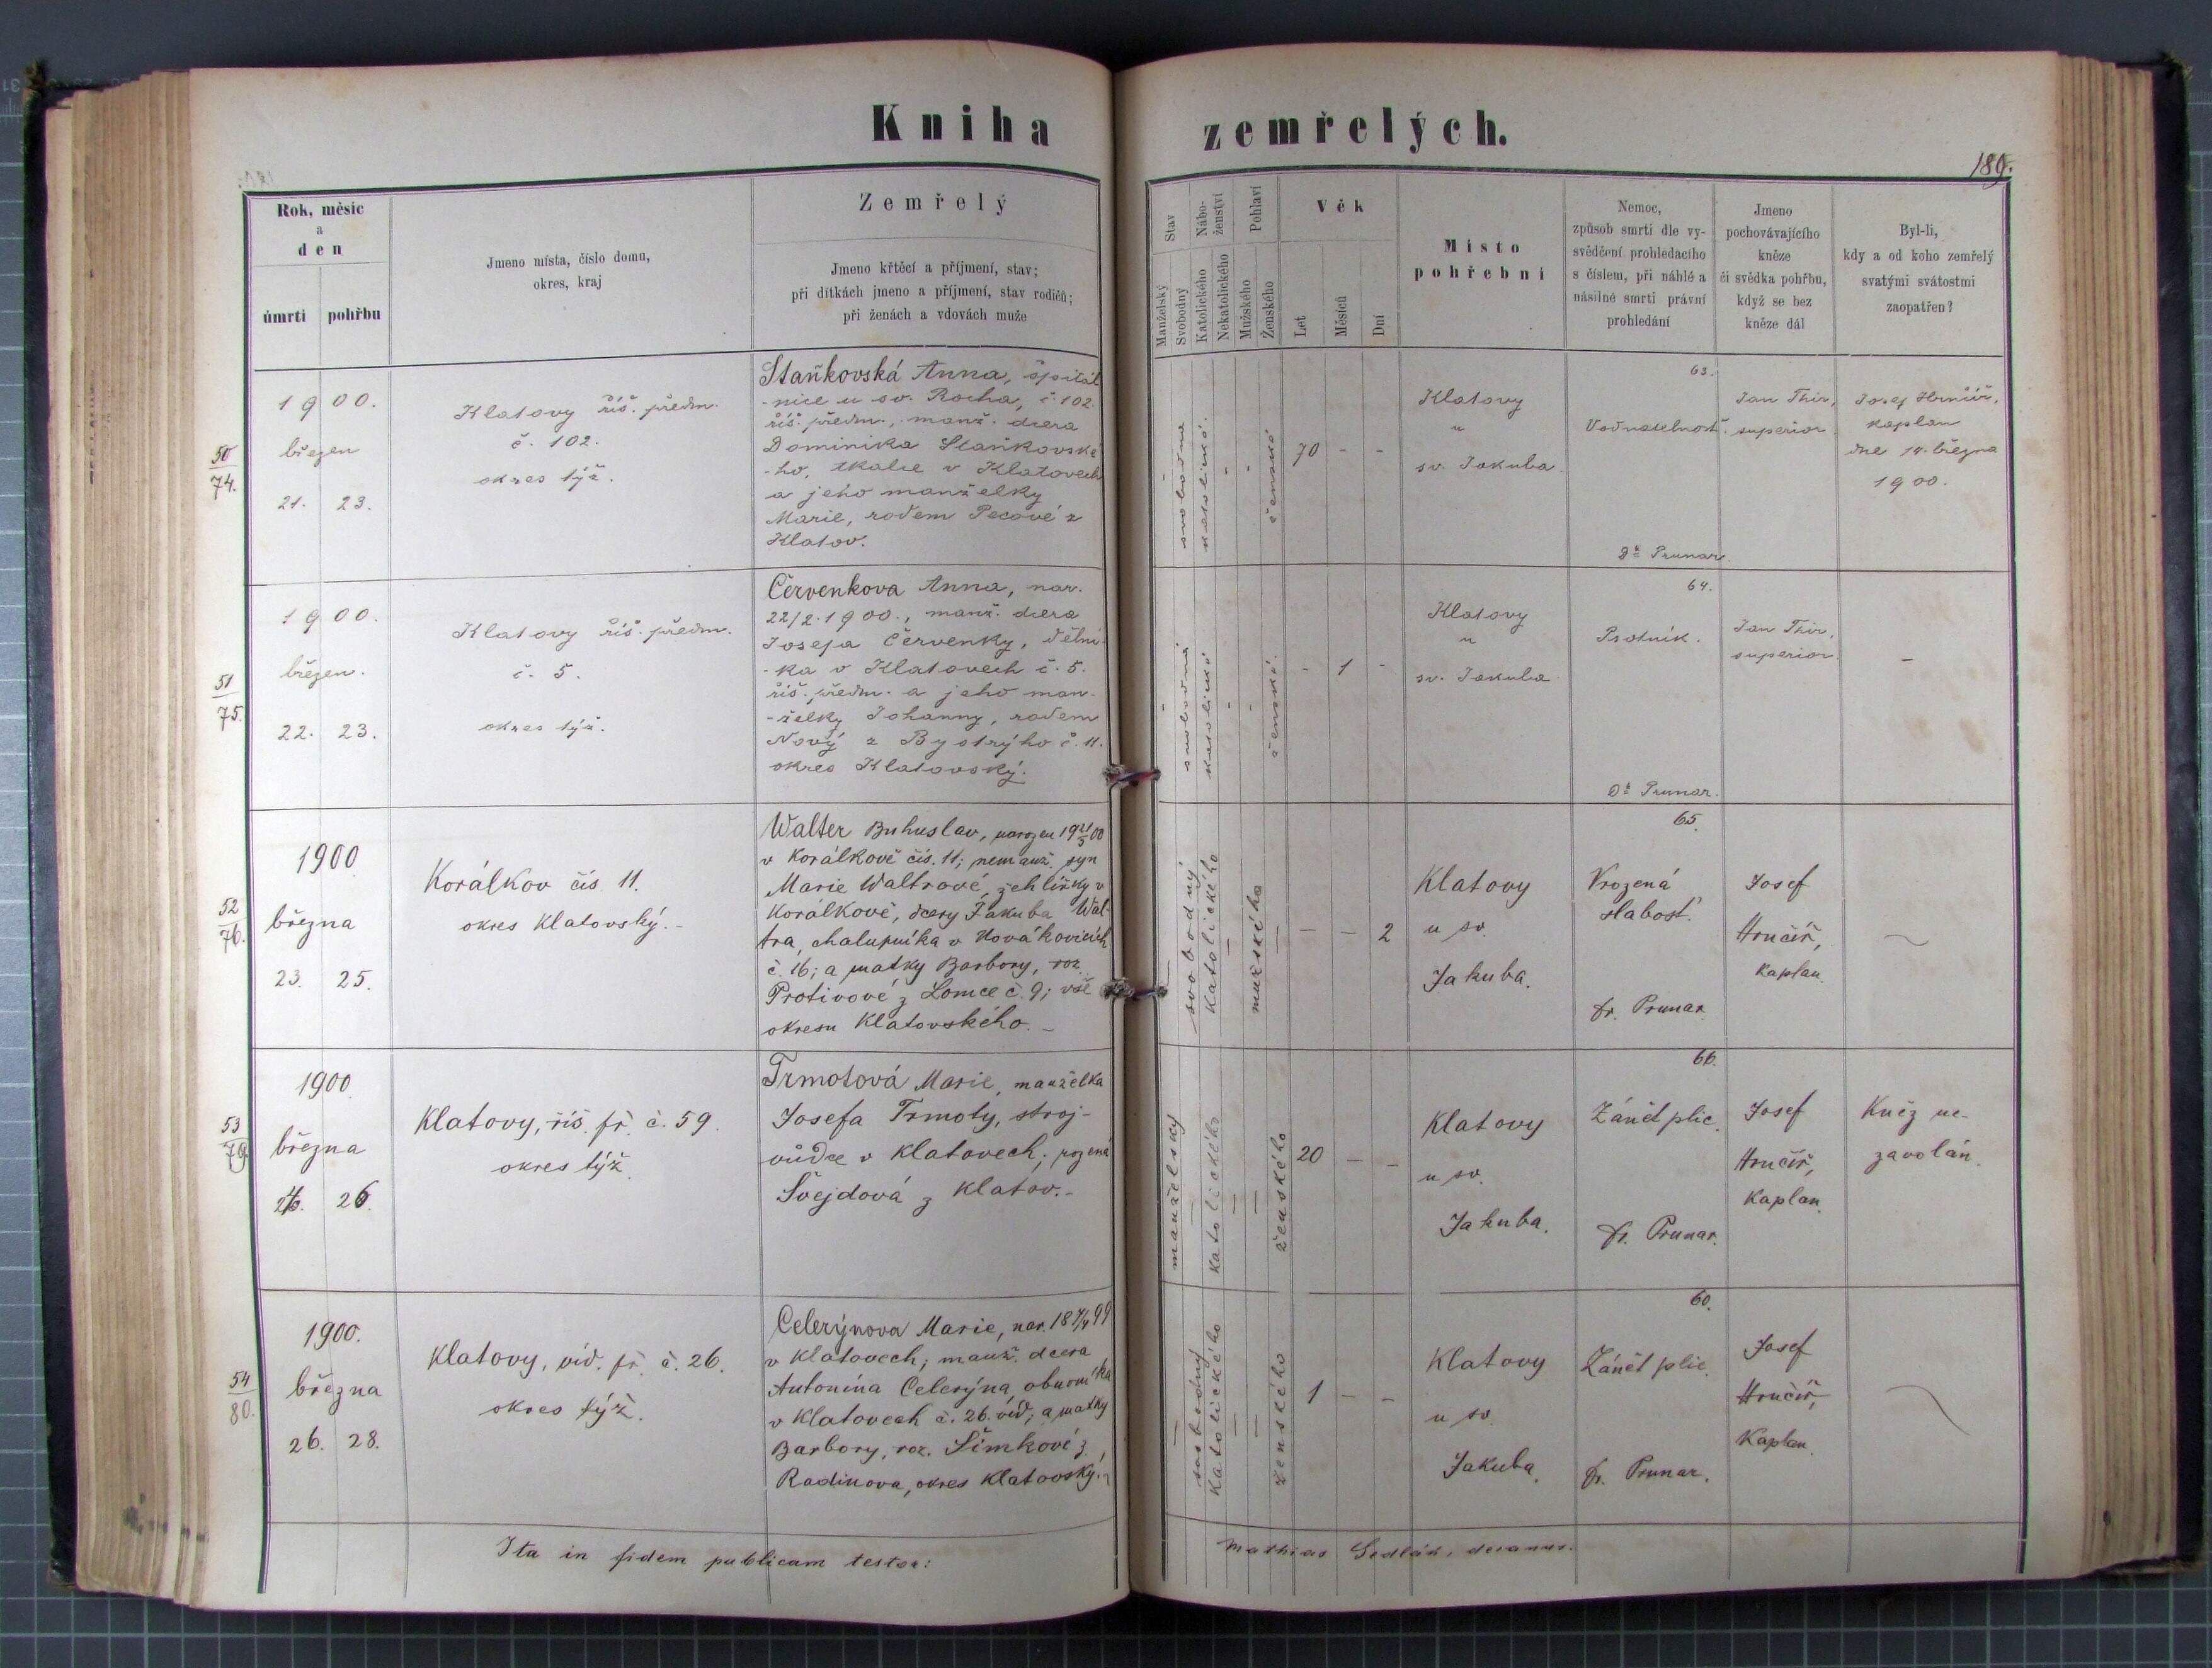 Kniha zemřelých.
189.
Rok, měsíc
a
den
úmrtí pohřbu
Jmeno místa, číslo domu,
okres, kraj
Zemřelý
Jmeno křtěcí a příjmení, stav;
při dítkách jmeno a příjmení, stav rodičů;
při ženách a vdovách muže
Stav
Manželský
Svobodný
Nábo-
ženství
Katolického
Nekatolického
Pohlaví
Mužského
Ženského
Věk
Let
Měsíců
Dní
Místo
pohřební
Nemoc,
způsob smrti dle vy-
svědčení prohledacího
s číslem, při náhlé a
násilné smrti právní
prohledání
Jmeno
pochovávajícího
kněze
či svědka pohřbu,
když se bez
kněze dál
Byl-li,
kdy a od koho zemřelý
svatými svátostmi
zaopatřen?
50
74.
1900.
březen
21. 23.
Klatovy říš. předm.
č. 102.
okres týž.
Staňkovská Anna, špitál
-nice u sv. Rocha, č. 102.
říš. předm., manž. dcera
Dominika Staňkovské
-ho, tkalce v Klatovech
a jeho manželky
Marie, rodem Pecové z
Klatov.
-
svobodná
katolické.
-
-
ženské
70 - -
Klatovy
u
sv. Jakuba.
63.
Vodnatelnost
Dr. Prunar.
Jan Thir,
superior.
Josef Hrnčíř,
kaplan
dne 14. března
1900.
51
75.
1900.
březen.
22. 23.
Klatovy říš. předm.
č. 5.
okres týž.
Červenkova Anna, nar.
22/2.1900., manž. dcera
Josefa Červenky, dělní-
-ka v Klatovech č. 5.
říš. předm. a jeho man-
-želky Johanny, rodem
Nový z Bystrýho č. 11.
okres Klatovský.
-
svobodná
katolické
-
-
ženské.
- 1 -
Klatovy
u
sv. Jakuba
64.
Psotník.
Dr. Prunar.
Jan Thir,
superior.
-
52
76.
1900
března
23. 25.
Korálkov čís. 11.
okres Klatovský.-
Walter Buhuslav, narozen 19 21/3 00
v Korálkově čís. 11; nemanž. syn
Marie Waltrové, žehlířky v
Korálkově, dcery Jakuba Wal-
tra, chalupníka v Novákovicích
č. 16; a matky Barbory, roz.
Protivové z Lomce č. 9; vše
okresu Klatovského.-
-
svobodný
katolického
-
mužského
-
- - 2
Klatovy
u sv.
Jakuba.
65.
Vrozená
slabost.
Dr. Prunar
Josef
Hrnčíř,
kaplan.
-
53
79.
1900
března
26.
Klatovy, říš. př. č. 59.
okres týž.
Trmotová Marie, manželka
Josefa Trmoty, stroj-
vůdce v Klatovech; rozená
Švejdová z Klatov.-
manželský
-
katolického
-
-
ženského
20 - -
Klatovy
u sv.
Jakuba.
66.
Zánět plic.
Dr. Prunar.
Josef
Hrnčíř,
Kaplan.
Kněz ne-
zavolán.
54
80.
1900.
března
26. 28.
Klatovy, víd. př. č. 26.
okres týž.
Celerýnova Marie, nar.
v Klatovech; manž. dcera
Antonína Celerýna, obuvníka
v Klatovech č. 26. víd; a matky
Barbory, roz. Šimkové z
Radinova, okres Klatovský.
-
svobodný
katolického
-
-
ženského
1 - -
Klatovy
u sv.
Jakuba.
60.
Zánět plic.
Dr. Prunar.
Josef
Hrnčíř,
Kaplan.
Ita in fidem publicam testor:
Mathias Sedlák, decanus.